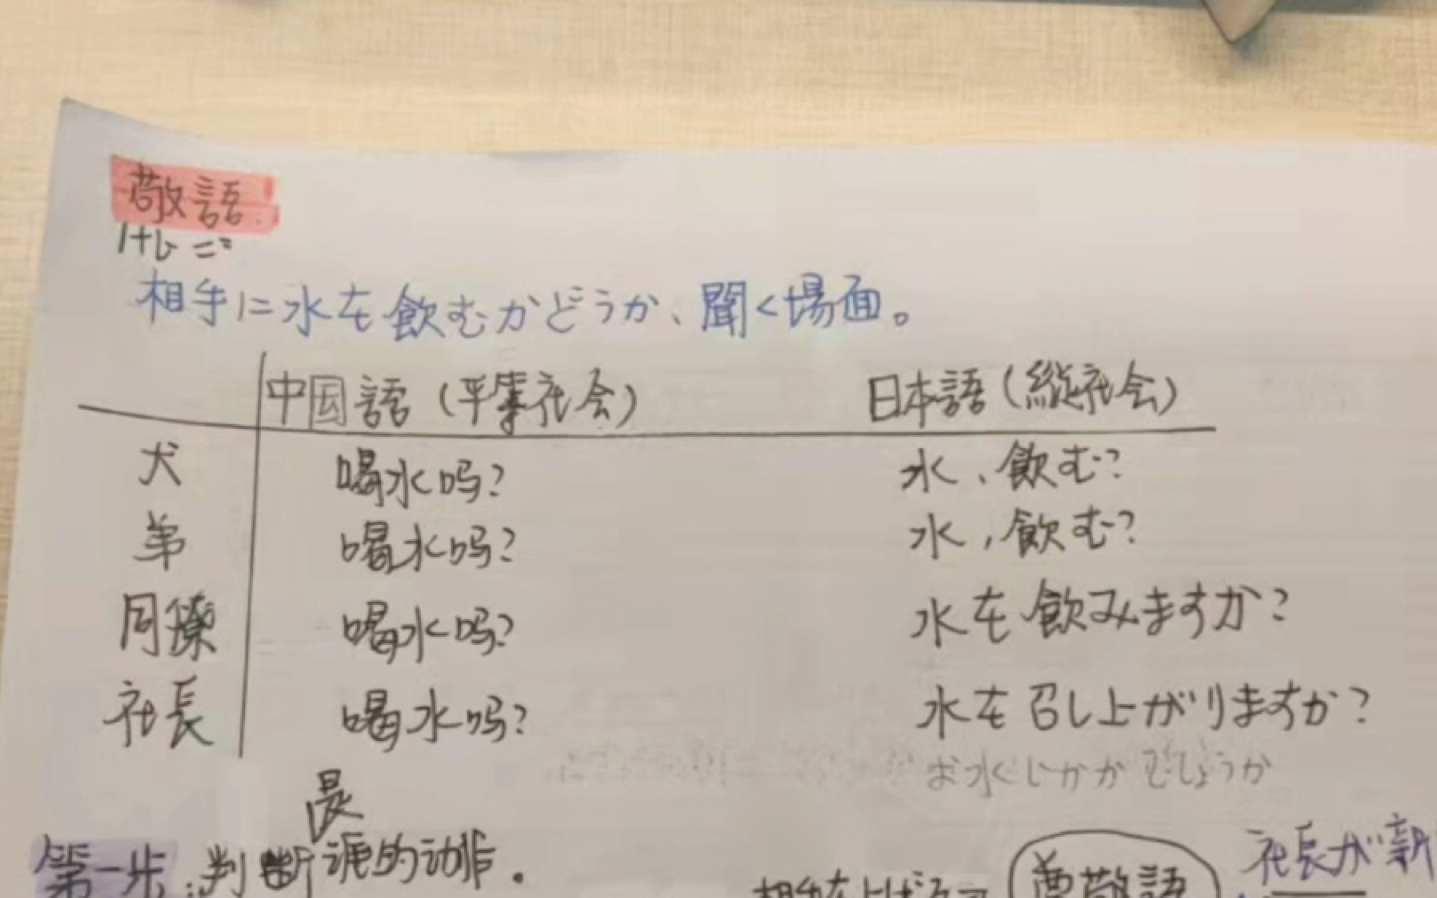 敬語
けいご
相手に水を飲むかどうか、聞く場面。
中国語（平等社会） 日本語（縦社会）
犬 喝水吗？ 水、飲む？
弟 喝水吗？ 水、飲む？
同僚 喝水吗？ 水を飲みますか？
社長 喝水吗？ 水を召し上がりますか？
お水いかがでしょうか
是
第一步：判断谁的动作。
尊敬語
社長が新